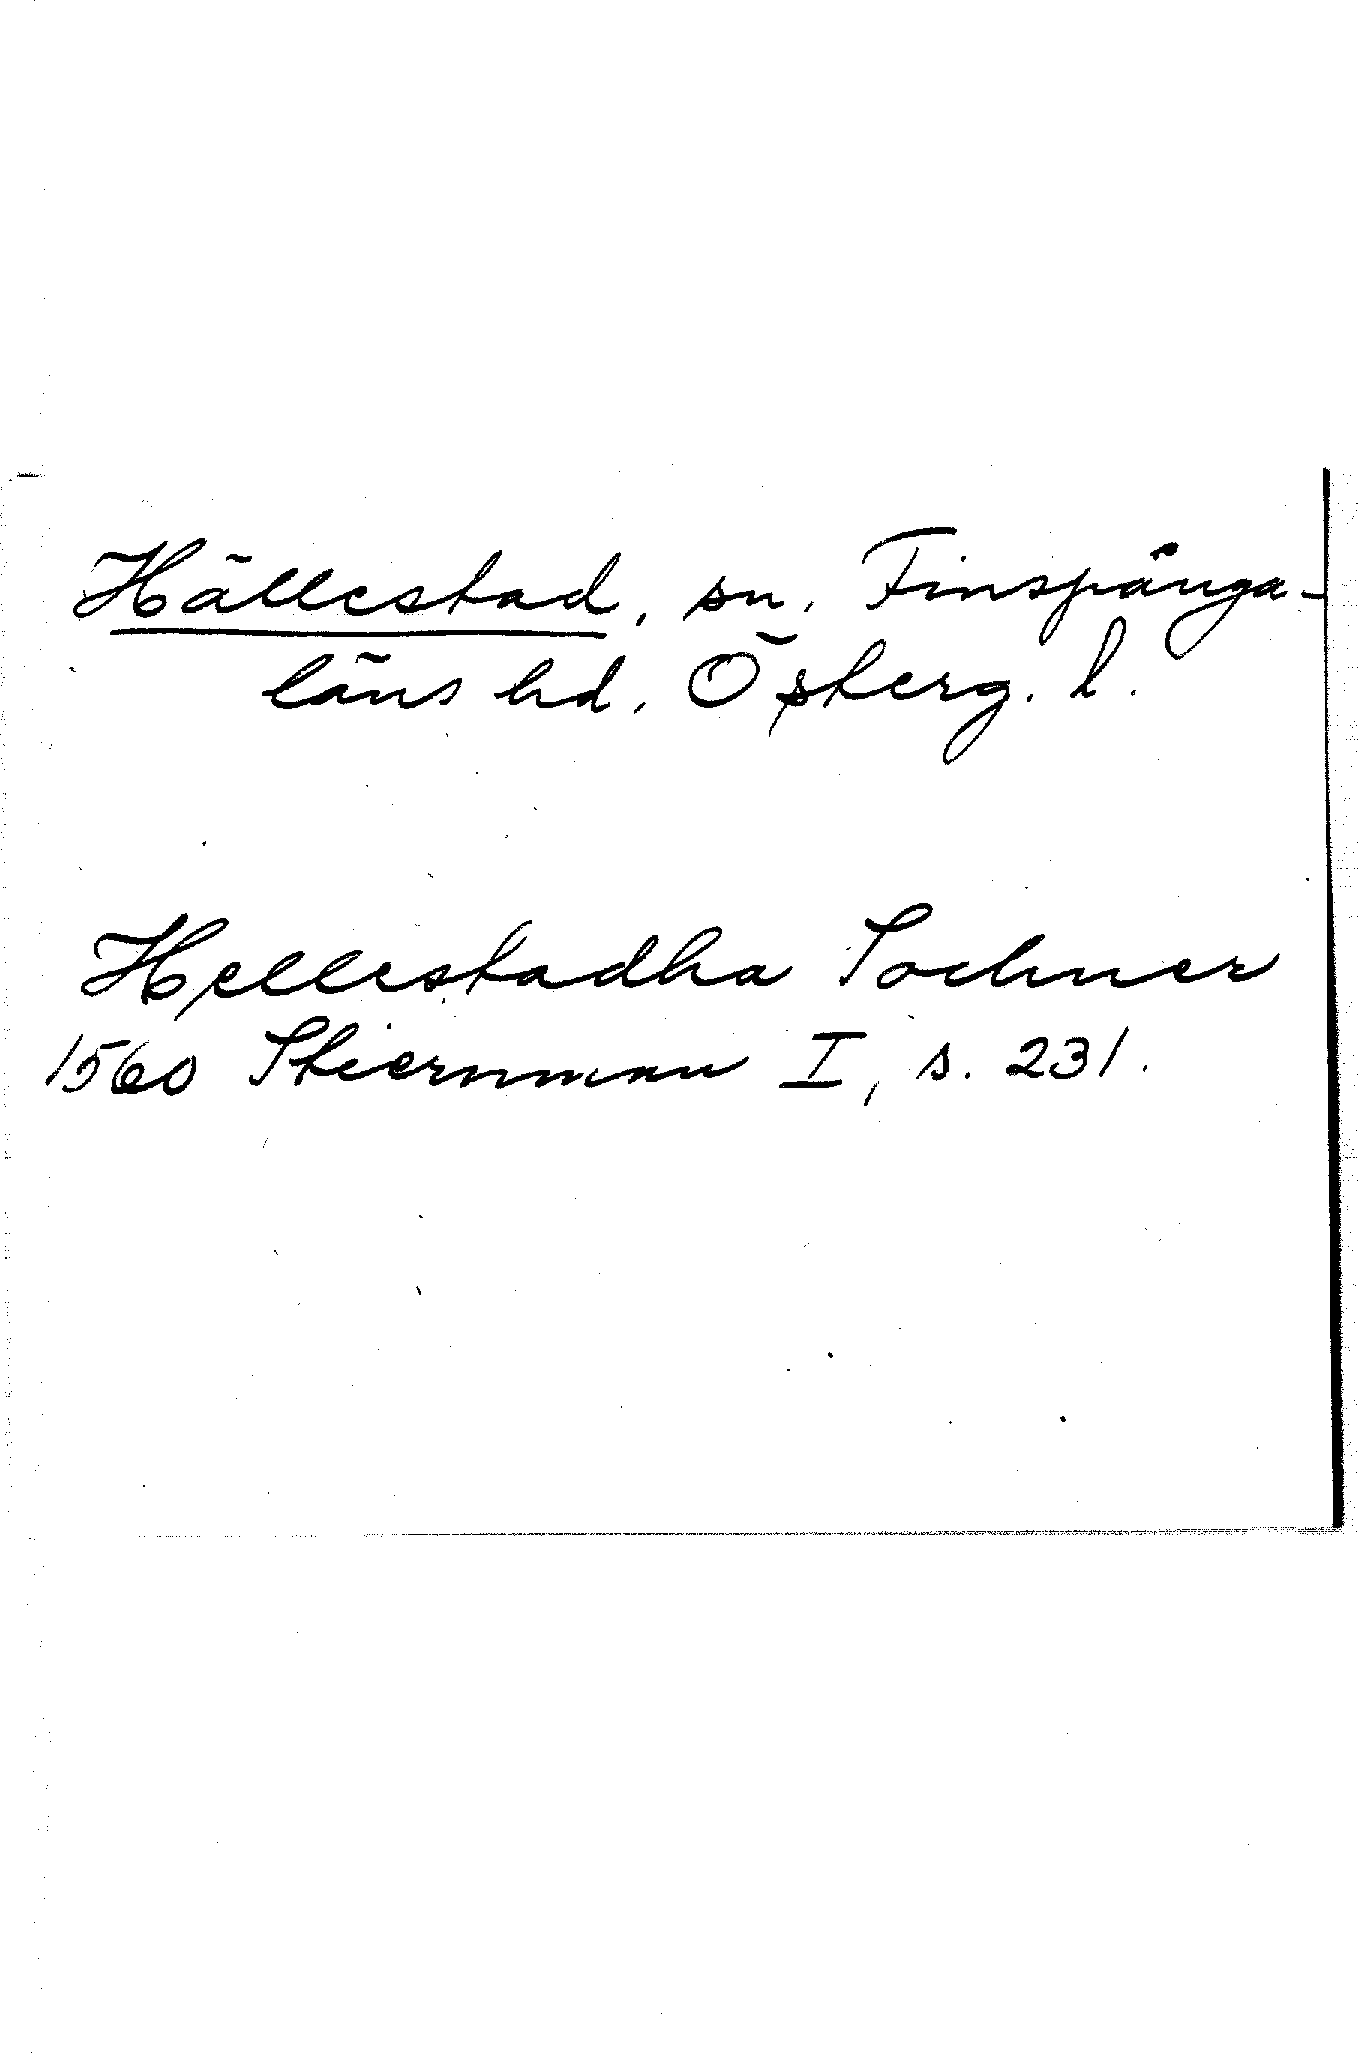 Hällestad, sn. Finspånga-
läns hd. Österg. l.
Hellestadha Sochner
1560 Stiernman I, s. 231.